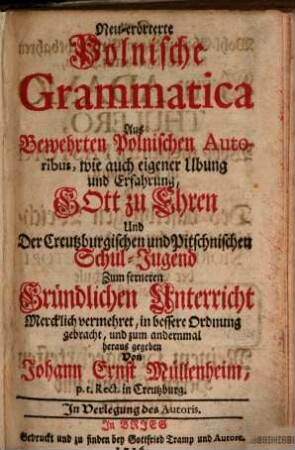 Neu-erörterte
Polnische
Grammatica
Aus
Bewehrten Polnischen Auto-
ribus, wie auch eigener Ubung
und Erfahrung,
GOtt zu Ehren
Und
Der Creutzburgischen und Pitschnischen
Schul-Jugend
Zum ferneren
Gründlichen Unterricht
Mercklich vermehret, in bessere Ordnung
gebracht, und zum andernmal
heraus gegeben
Von
Johann Ernst Müllenheim,
p. t. Rect. in Creutzburg.
In Verlegung des Autoris.
In BRIEG
Gedruckt und zu finden bey Gottfried Tramp und Autore.